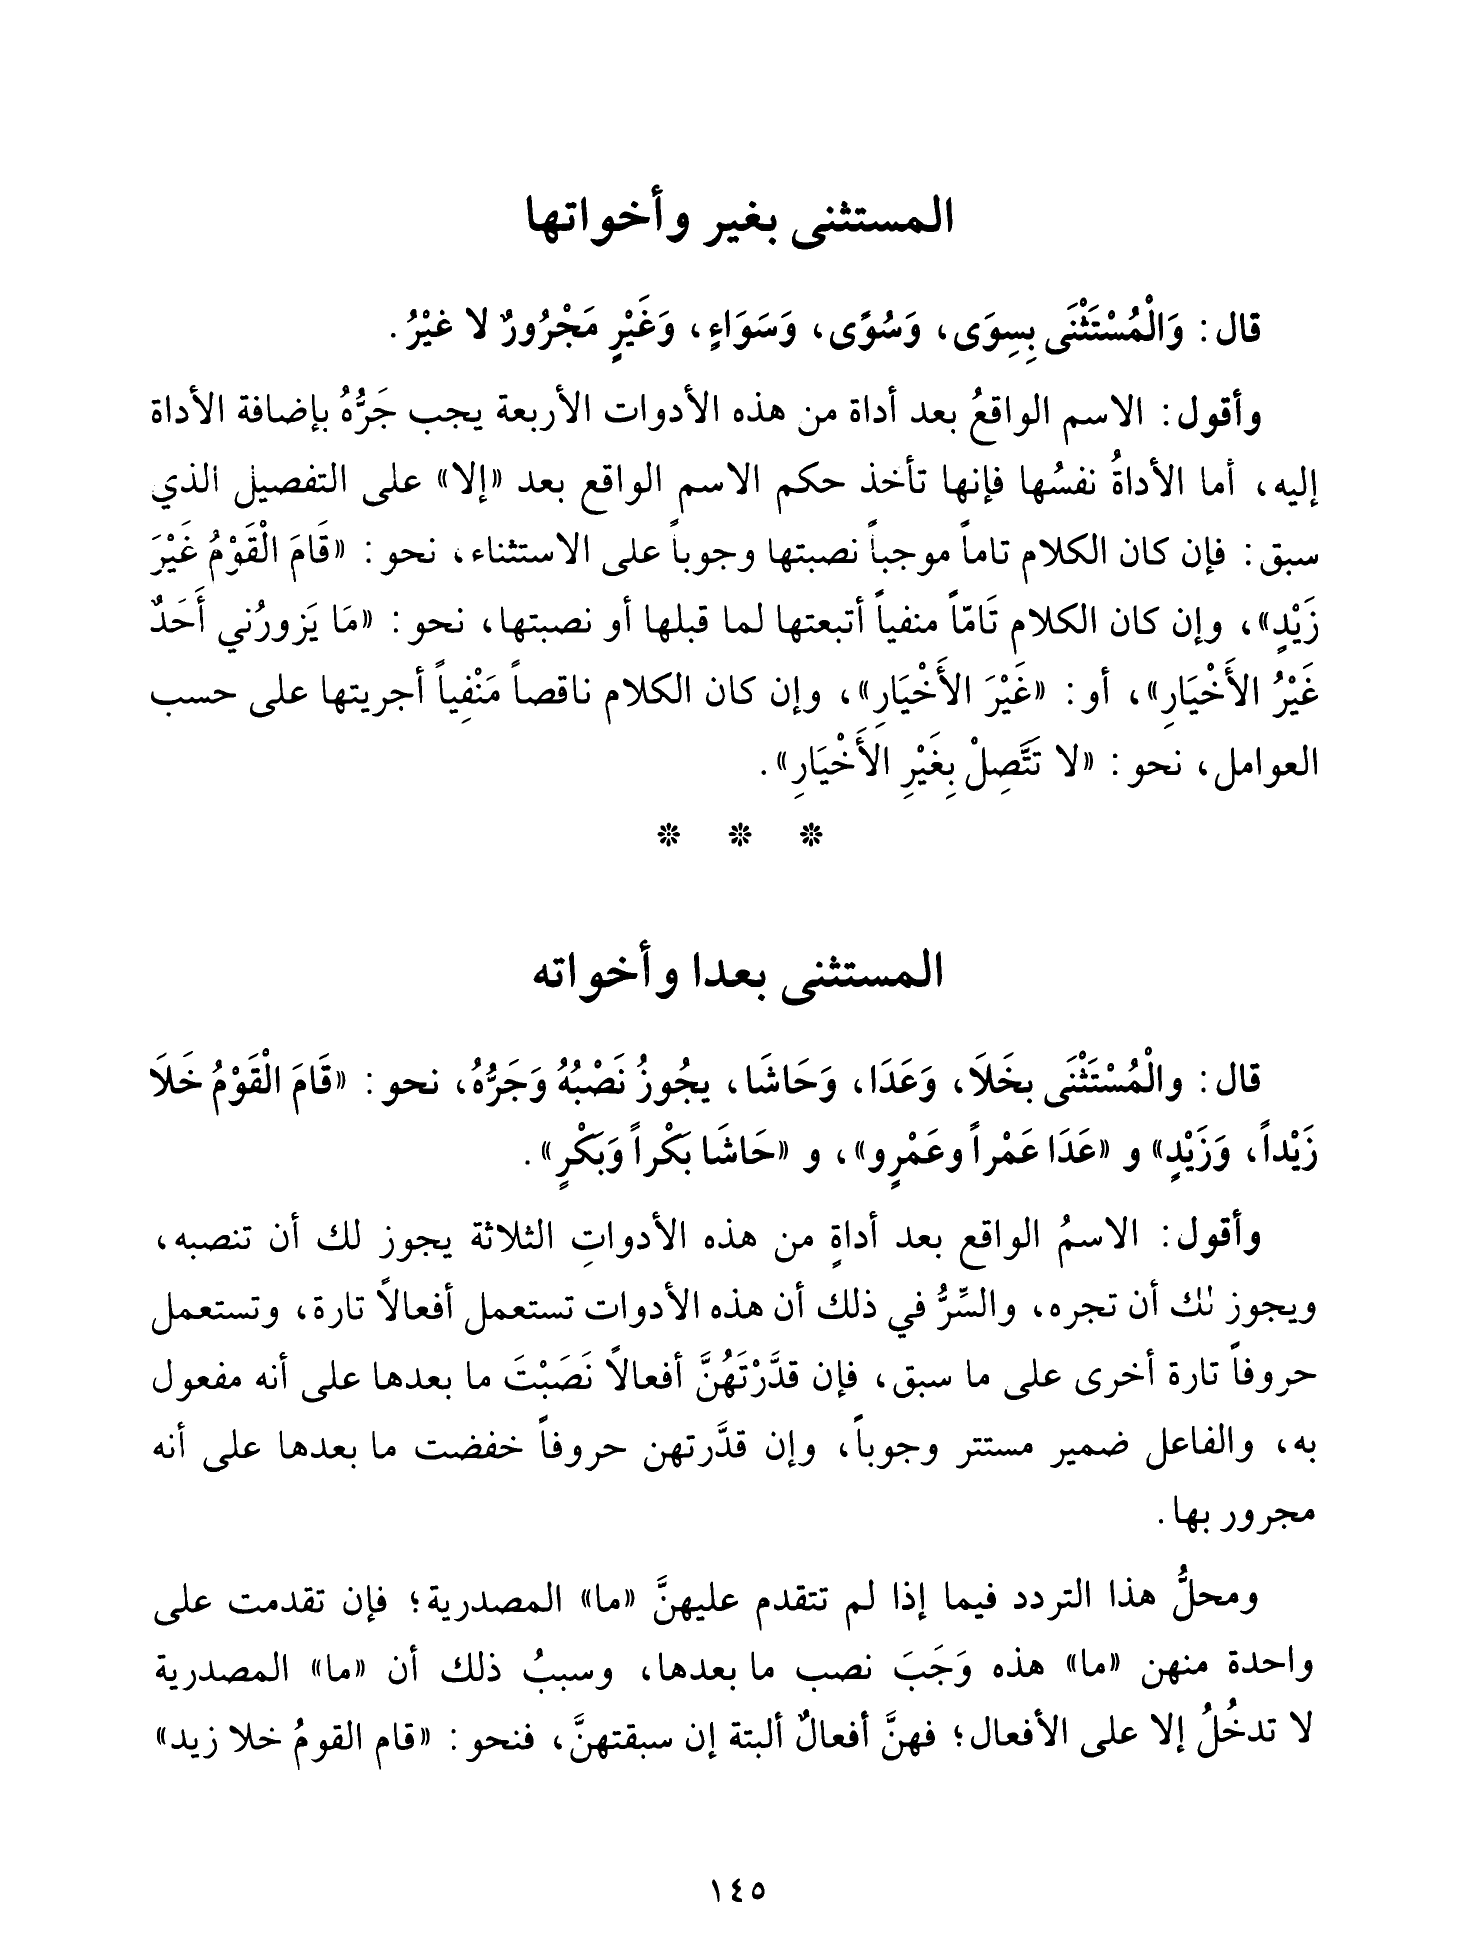 المستثنى بغير وأخواتها
قال: وَالْمُسْتَثْنَى بِسِوَى، وَسُوًى، وَسَوَاءٍ، وَغَيْرٍ مَجْرُورٌ لا غيْرُ.
وأقول: الاسم الواقعُ بعد أداة من هذه الأدوات الأربعة يجب جَرُّهُ بإضافة الأداة
إليه، أما الأداةُ نفسُها فإنها تأخذ حكم الاسم الواقع بعد «إلا» على التفصيل الذي
سبق: فإن كان الكلام تاماً موجباً نصبتها وجوباً على الاستثناء، نحو: «قَامَ الْقَوْمُ غَيْرَ
زَيْدٍ»، وإن كان الكلام تَامّاً منفياً أتبعتها لما قبلها أو نصبتها، نحو: «مَا يَزورُني أَحَدٌ
غَيْرُ الأَخْيَارِ»، أو: «غَيْرَ الأَخْيَارِ»، وإن كان الكلام ناقصاً مَنْفِياً أجريتها على حسب
العوامل، نحو: «لا تَتَّصِلْ بِغَيْرِ الأَخْيَارِ».
❊ ❊ ❊
المستثنى بعدا وأخواته
قال: والْمُسْتَثْنَى بخَلَا، وَعَدَا، وَحَاشَا، يجُوزُ نَصْبُهُ وَجَرُّهُ، نحو: «قَامَ الْقَوْمُ خَلَا
زَيْداً، وَزَيْدٍ» و «عَدَا عَمْراً وعَمْرٍو»، و «حَاشَا بَكْراً وَبَكْرٍ».
وأقول: الاسمُ الواقع بعد أداةٍ من هذه الأدواتِ الثلاثة يجوز لك أن تنصبه،
ويجوز لك أن تجره، والسِّرُّ في ذلك أن هذه الأدوات تستعمل أفعالاً تارة، وتستعمل
حروفاً تارة أخرى على ما سبق، فإن قدَّرْتَهُنَّ أفعالاً نَصَبْتَ ما بعدها على أنه مفعول
به، والفاعل ضمير مستتر وجوباً، وإن قدَّرتهن حروفاً خفضت ما بعدها على أنه
مجرور بها.
ومحلُّ هذا التردد فيما إذا لم تتقدم عليهنَّ «ما» المصدرية؛ فإن تقدمت على
واحدة منهن «ما» هذه وَجَبَ نصب ما بعدها، وسببُ ذلك أن «ما» المصدرية
لا تدخُلُ إلا على الأفعال؛ فهنَّ أفعالٌ ألبتة إن سبقتهنَّ، فنحو: «قام القومُ خلا زيد»
١٤٥